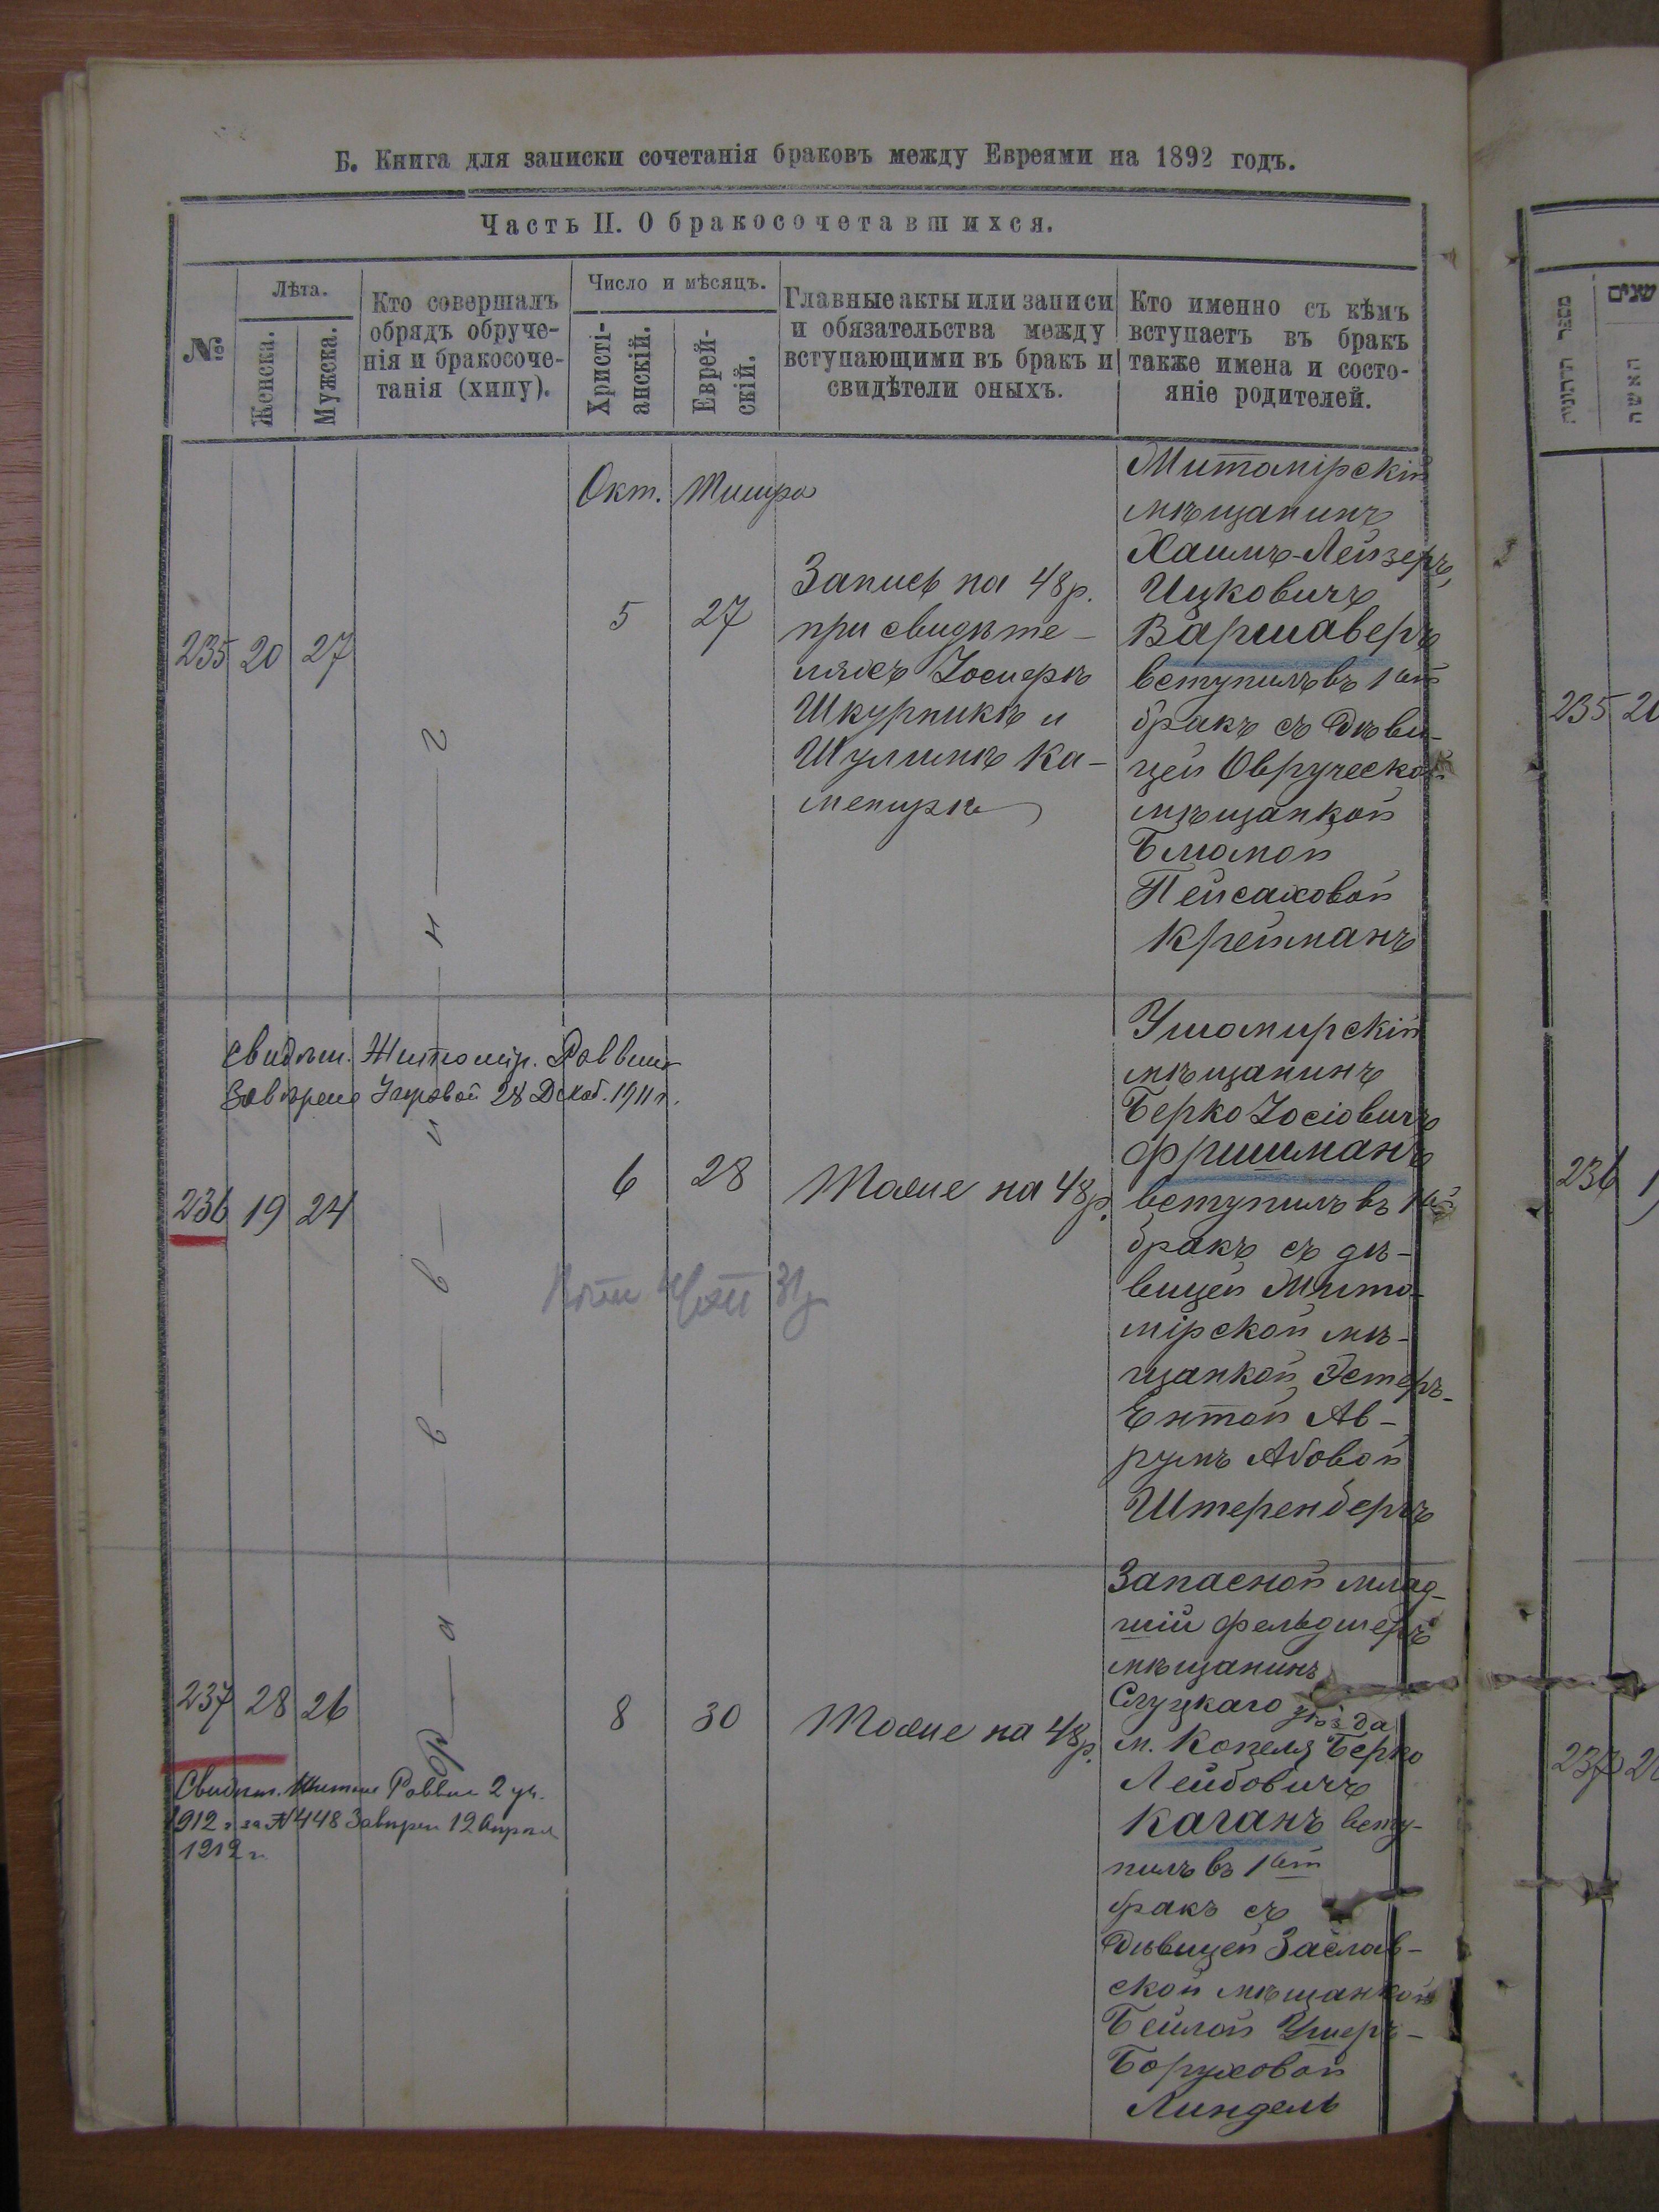 Б. Книга для записки сочетанія браковъ между Евреями на 1892 годъ.
Часть II. О бракосочетавшихся.
№
Лѣта.
Женска.
Мужска.
Кто совершалъ
обрядъ обруче-
нія и бракосоче-
танія (хипу).
Число и мѣсяцъ.
Христі-
анскій.
Еврей-
скій.
Главные акты или записи
и обязательства между
вступающими въ бракъ и
свидѣтели оныхъ.
Кто именно съ кѣмъ
вступаетъ въ бракъ
также имена и состо-
яніе родителей.
Окт.
Тишра
235
20
27
5
27
Запись на 48 р.
при свидѣте-
ляхъ Іосперѣ
Шкурникѣ и
Шулимѣ Ка-
менирѣ
Житомірскій
мѣщанинъ
Хаимъ-Лейзеръ
Ицковичъ
Варшаверъ
вступилъ въ 1ый
бракъ съ дѣви-
цей Овручской
мѣщанкой
Блюмой
Пейсаховой
Крейманъ
Свидѣт. Житомір. Раввина
28 Декаб. 1911 г.
236
19
24
6
28
Тоже на 48 р.
Ушомирскій
мѣщанинъ
Берко Іосіовичъ
Фришманъ
вступилъ въ 1ый
бракъ съ дѣ-
вицей Жито-
мірской мѣ-
щанкой Эстеръ-
Ентой Ав-
румъ Абовой
Штеренбергъ
237
28
26
8
30
Тоже на 48 р.
Свидѣт. Раввин 2
1912 г. за № 448 12 Апрѣля
1912 г.
Запасной млад-
шій фельдшеръ
мѣщанинъ
Слуцкаго уѣзда
м. Копеля Берко
Лейбовичъ
Каганъ всту-
пилъ въ 1ый
бракъ съ
дѣвицей Заслав-
ской мѣщанкой
Бейлой Ушеръ-
Боруховой
Линдель
מספר החתונה
שנים
האשה
235
20
236
237